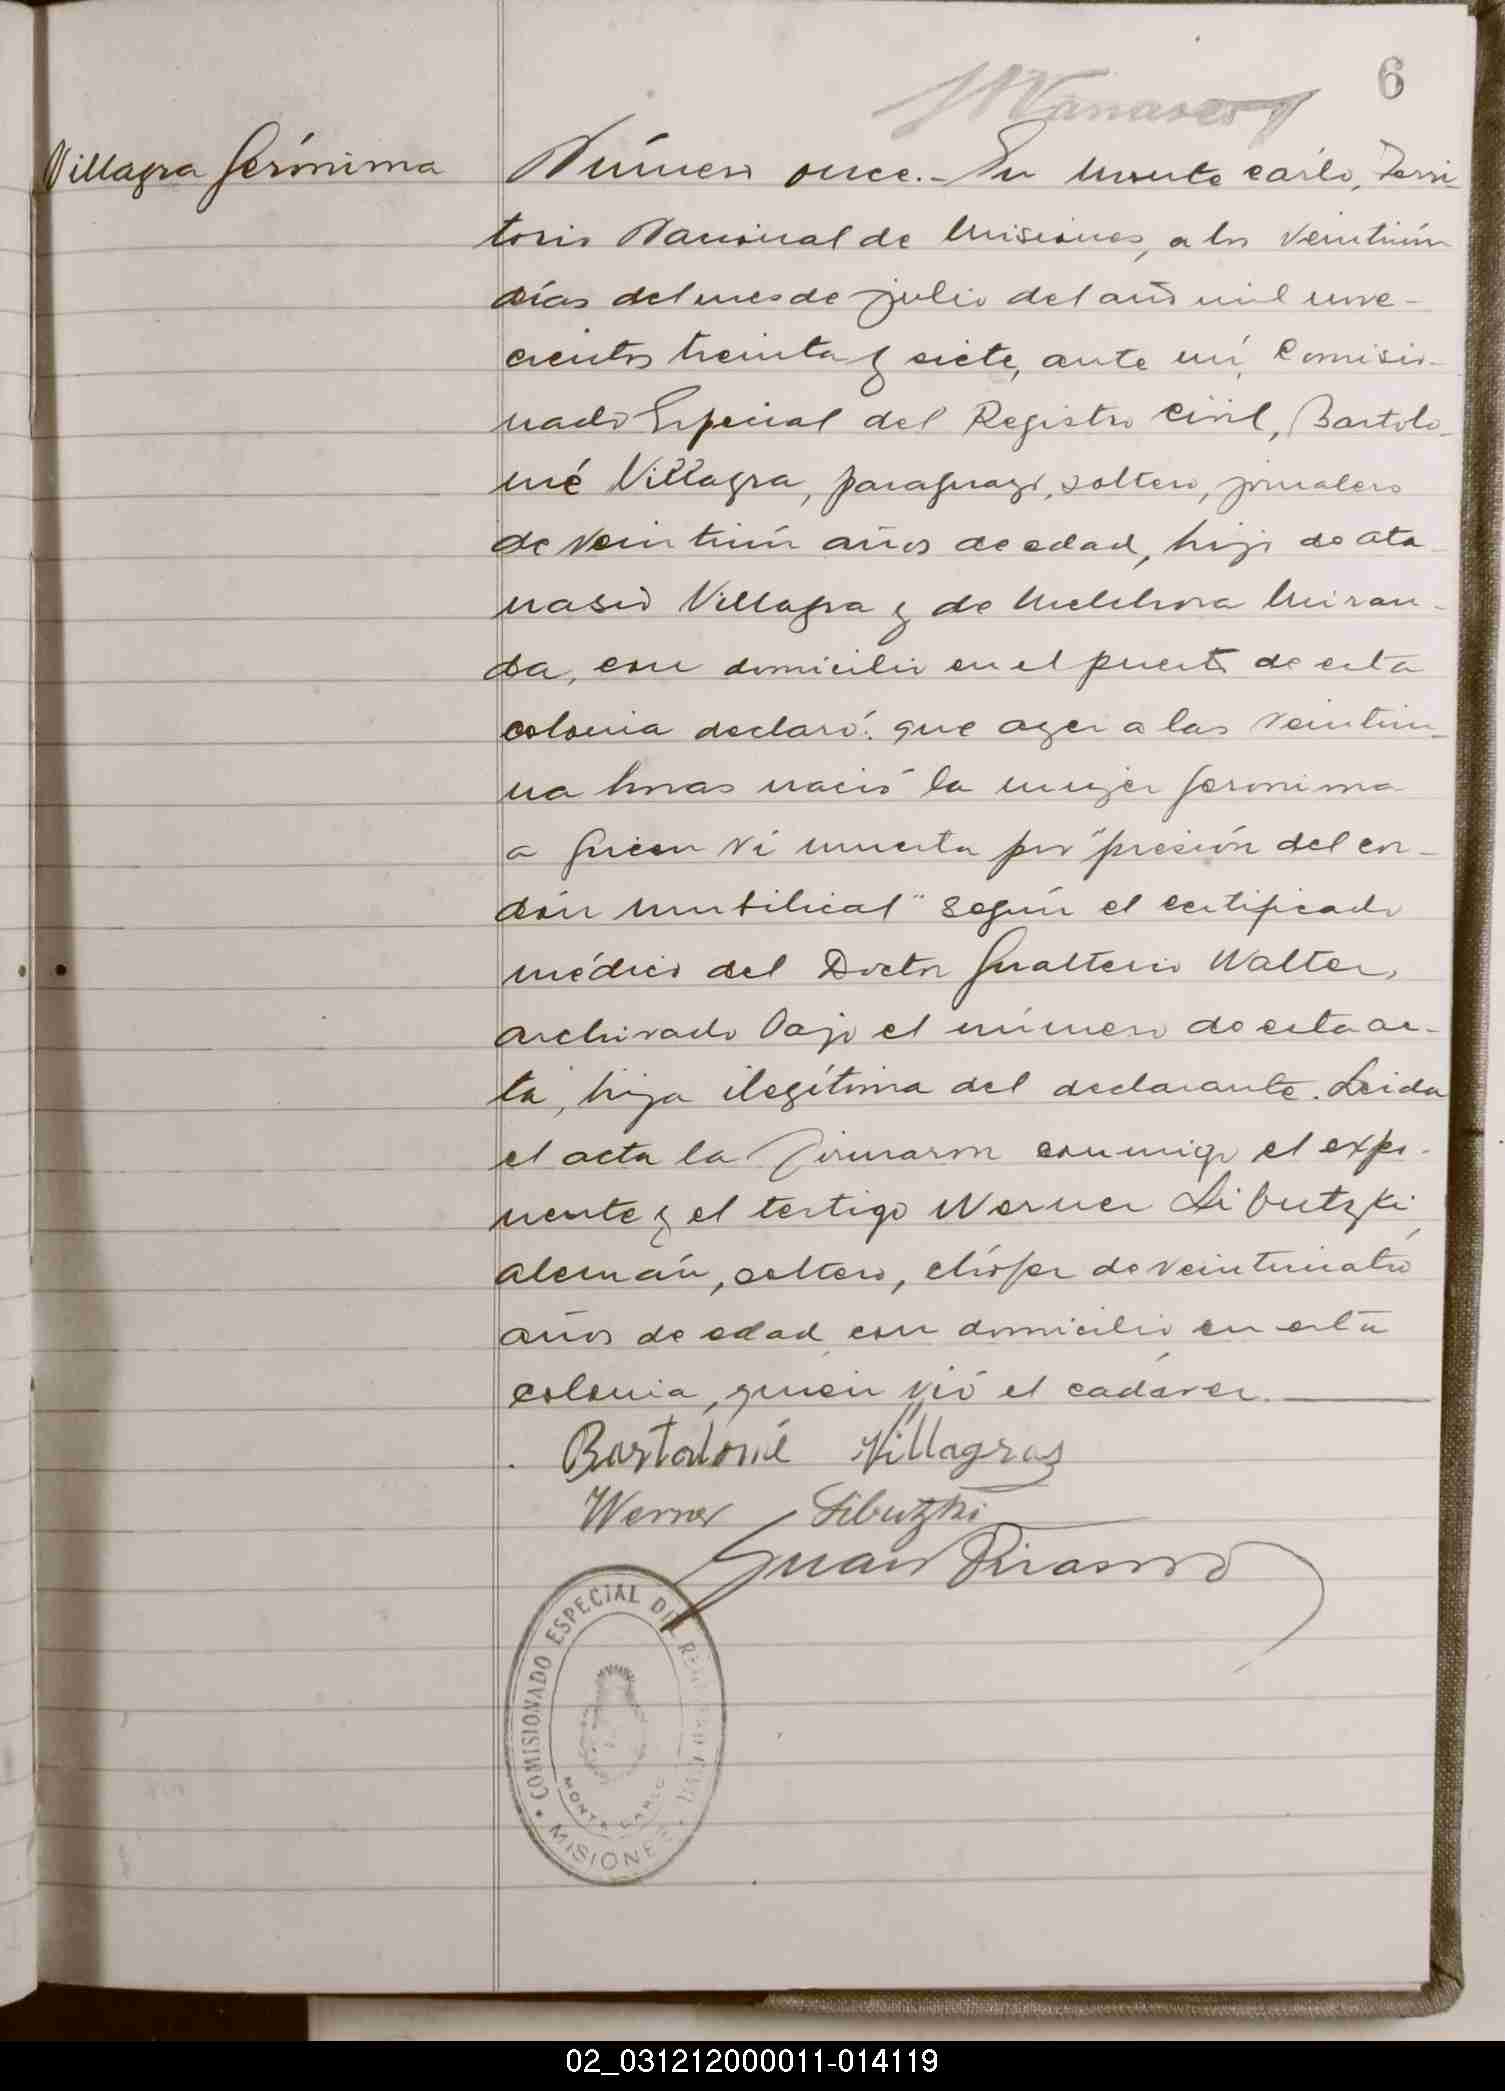 6
Villagra Gerónima
Número once.- En Monte Carlo, Terri-
torio Nacional de Misiones, a los veintiún
días del mes de julio del año mil nove-
cientos treinta y siete, ante mí, Comisio-
nado Especial del Registro Civil, Bartolo-
mé Villagra, paraguayo, soltero, jornalero
de veintiún años de edad, hijo de Ata-
nasio Villagra y de Melchora Miran-
da, con domicilio en el puerto de esta
colonia declaró: que ayer a las veintiu-
na horas nació la mujer Geronima
a quien ví muerta por "presión del cor-
dón umbilical" según el certificado
médico del Doctor Gualterio Walter,
archivado bajo el número de esta ac-
ta, hija ilegítima del declarante. Leida
el acta la firmaron conmigo el expo-
nente y el testigo Werner Libutzki,
alemán, soltero, chófer de veinticuatro
años de edad con domicilio en esta
colonia, quién vió el cadáver.
Bartolomé Villagras
Werner Libutzki
Juan
COMISIONADO ESPECIAL DEL REGISTRO CIVIL
MONTE CARLO
MISIONES
02_031212000011-014119